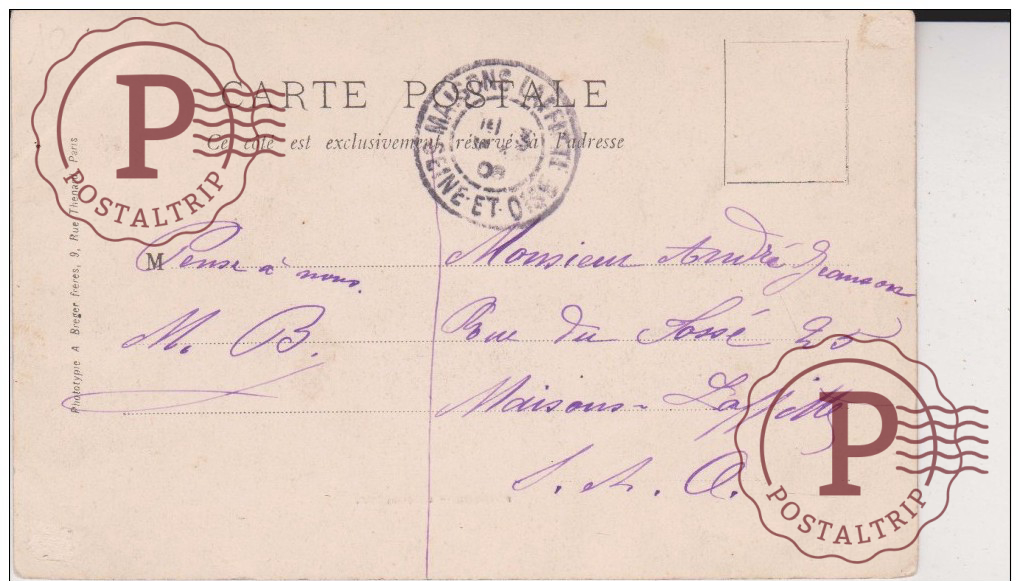 CARTE POSTALE
Ce côté est exclusivement réservé à l'adresse
MAISONS LAFFITTE
3
08
SEINE-ET-OISE
M
Pense à nous.
M. B.
Monsieur André Jeanson
Rue du Fossé 25
Maisons-Laffitte
S. et. O.
Phototypie A Breger frères, 9, Rue Thenard, Paris
P
POSTALTRIP
P
POSTALTRIP